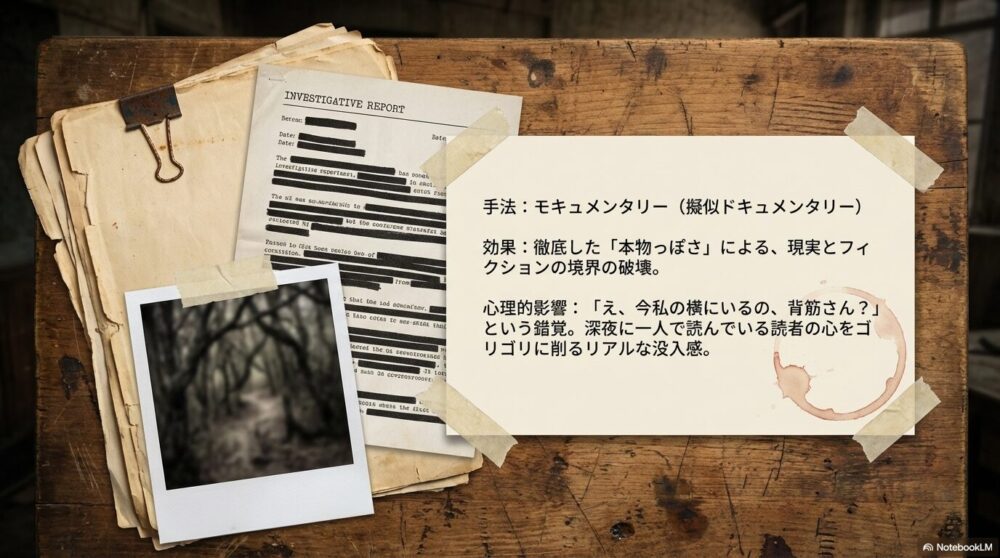 INVESTIGATIVE REPORT
Date:
Date
Date:
The
手法：モキュメンタリー（擬似ドキュメンタリー）
効果：徹底した「本物っぽさ」による、現実とフィ
クションの境界の破壊。
心理的影響：「え、今私の横にいるの、背筋さん？」
という錯覚。深夜に一人で読んでいる読者の心をゴ
リゴリに削るリアルな没入感。
NotebookLM